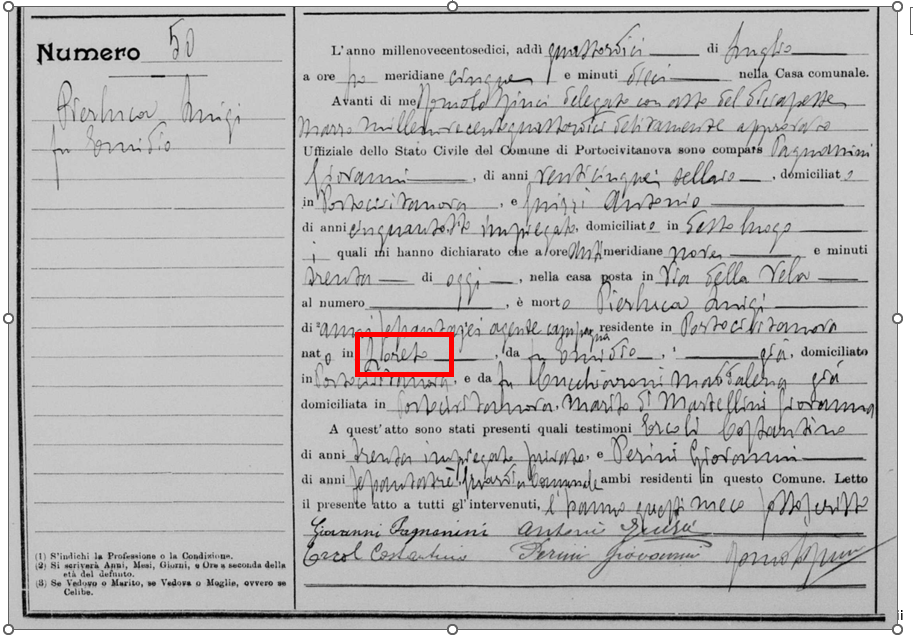 Numero 50
Pierluca Luigi
fu Emidio
(1) S'indichi la Professione o la Condizione.
(2) Si scriverà Anni, Mesi, Giorni, o Ore a seconda della
età del defunto.
(3) Se Vedovo o Marito, se Vedova o Moglie, ovvero se
Celibe.
L'anno millenovecentosedici, addì quattordici di luglio
a ore po meridiane cinque e minuti dieci nella Casa comunale.
Avanti di me Romolo delegato con atto del diciasette
Marzo millenovecentoquattordici debitamente approvato
Uffiziale dello Stato Civile del Comune di Portocivitanova sono comparsi Pagnanini
Giovanni, di anni venticinque, sellaio, domiciliato
in Portocivitanova, e Antonio
di anni cinquantotto impiegato, domiciliato in detto luogo
i quali mi hanno dichiarato che a ore anti meridiane nove e minuti
trenta di oggi, nella casa posta in Via della Vela
al numero, è morto Pierluca Luigi
di anni settantasei agente campagna residente in Portocivitanova
nato in Loreto, da fu Emidio, già domiciliato
in Portocivitanova, e da fu Cucchiaroni Maddalena già
domiciliata in Portocivitanova, Marito di Martellini Giovanna
A quest'atto sono stati presenti quali testimoni Ercoli Costantino
di anni trenta impiegato privato, e Perini Giovanni
di anni settantatrè, guardia Comunale ambi residenti in questo Comune. Letto
il presente atto a tutti gl'intervenuti, l'hanno questi meco sottoscritto
Giovanni Pagnanini Antonio
Ercol Costantino Perini Giovanni